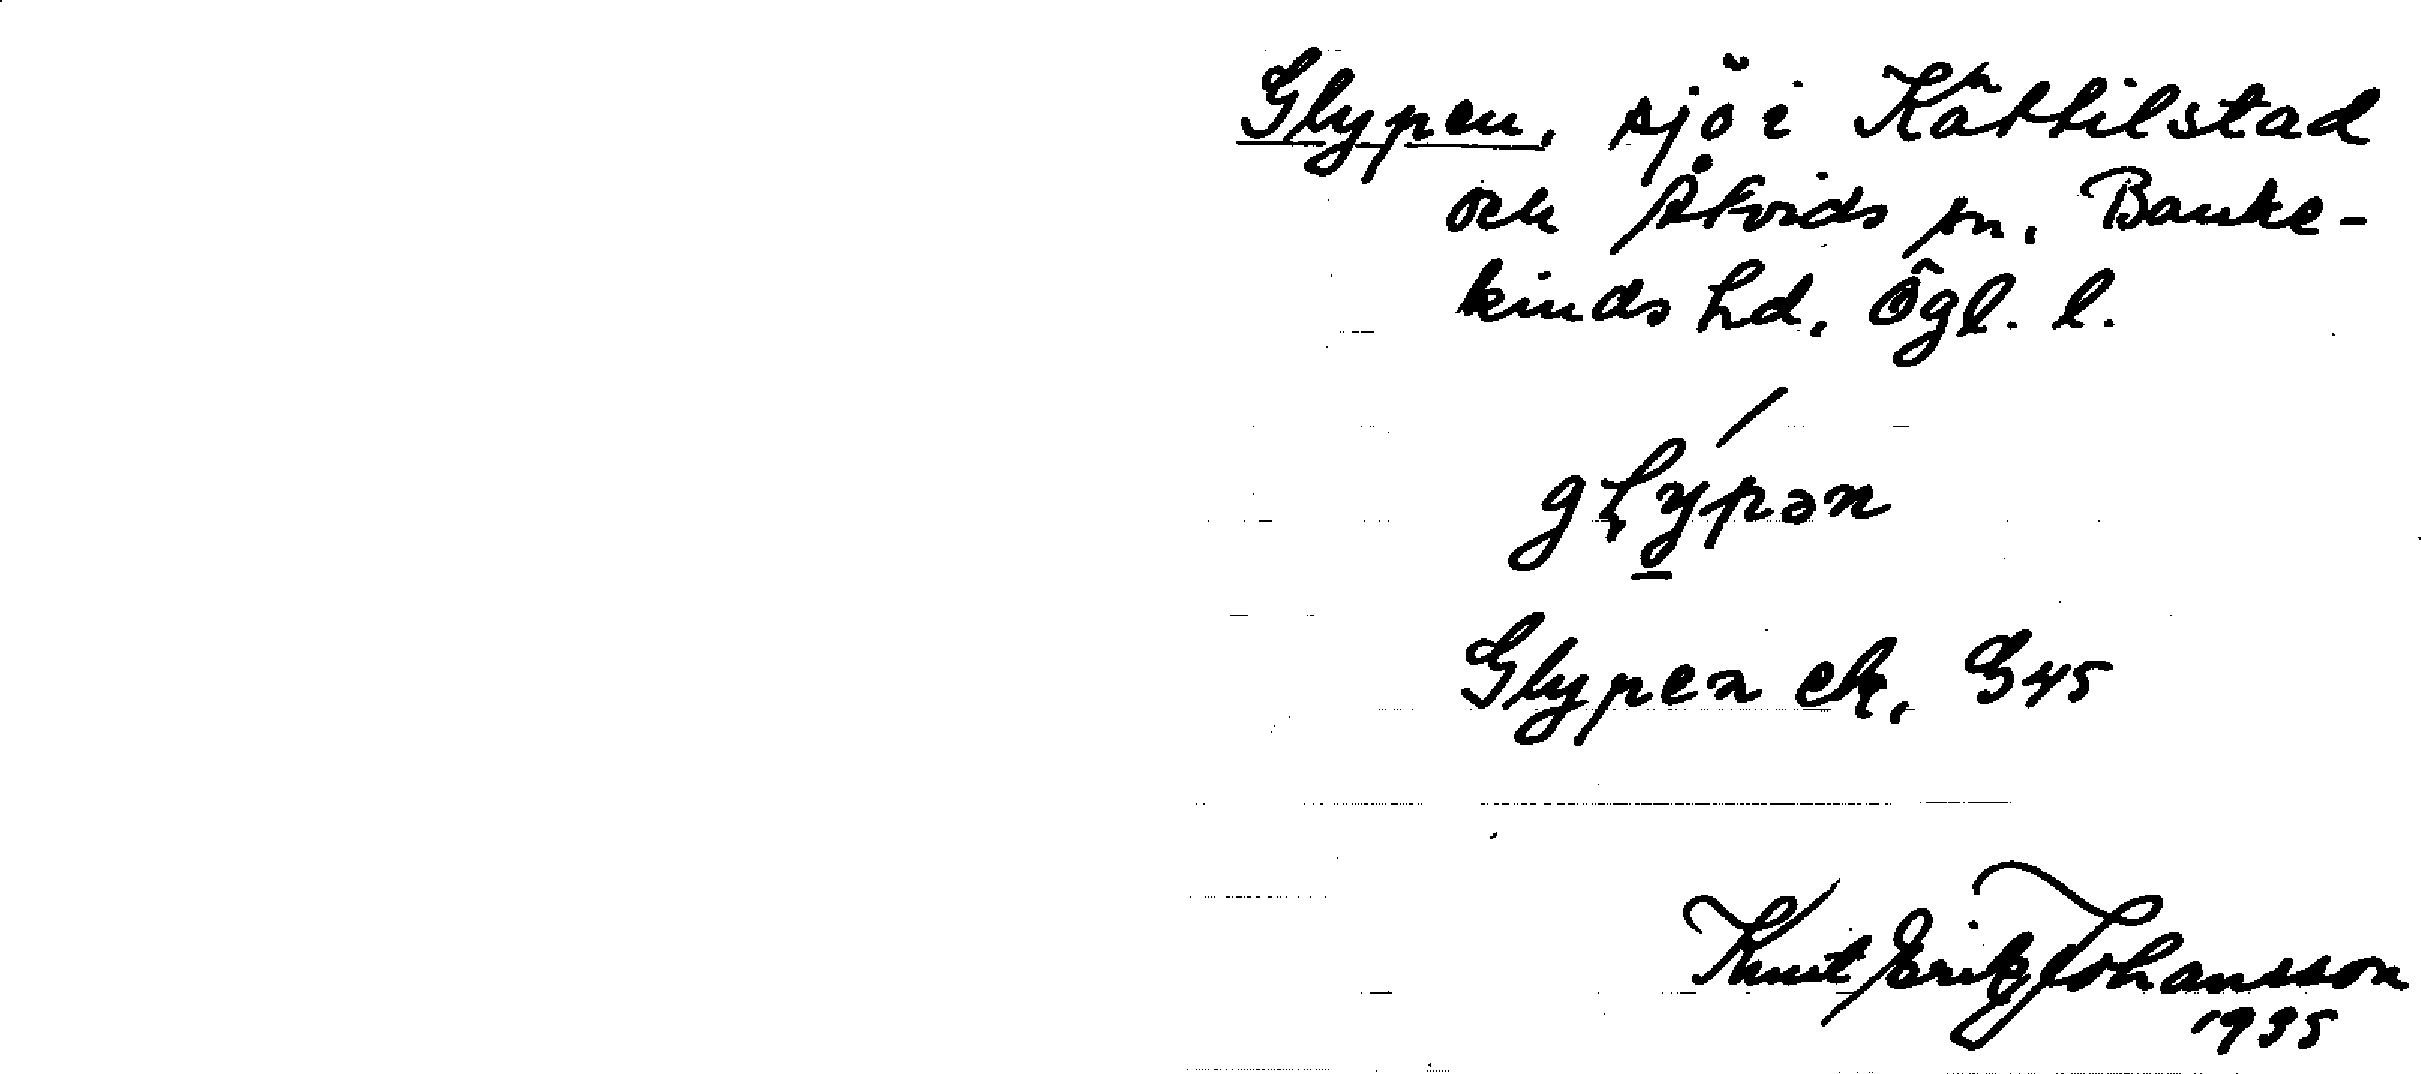 Glypen, sjö i Kättilstad
och Åtvids sn, Banke-
kinds hd, Ögl. l.
glypən
Glypen ek, G45
Knut Erik Johansson
1935